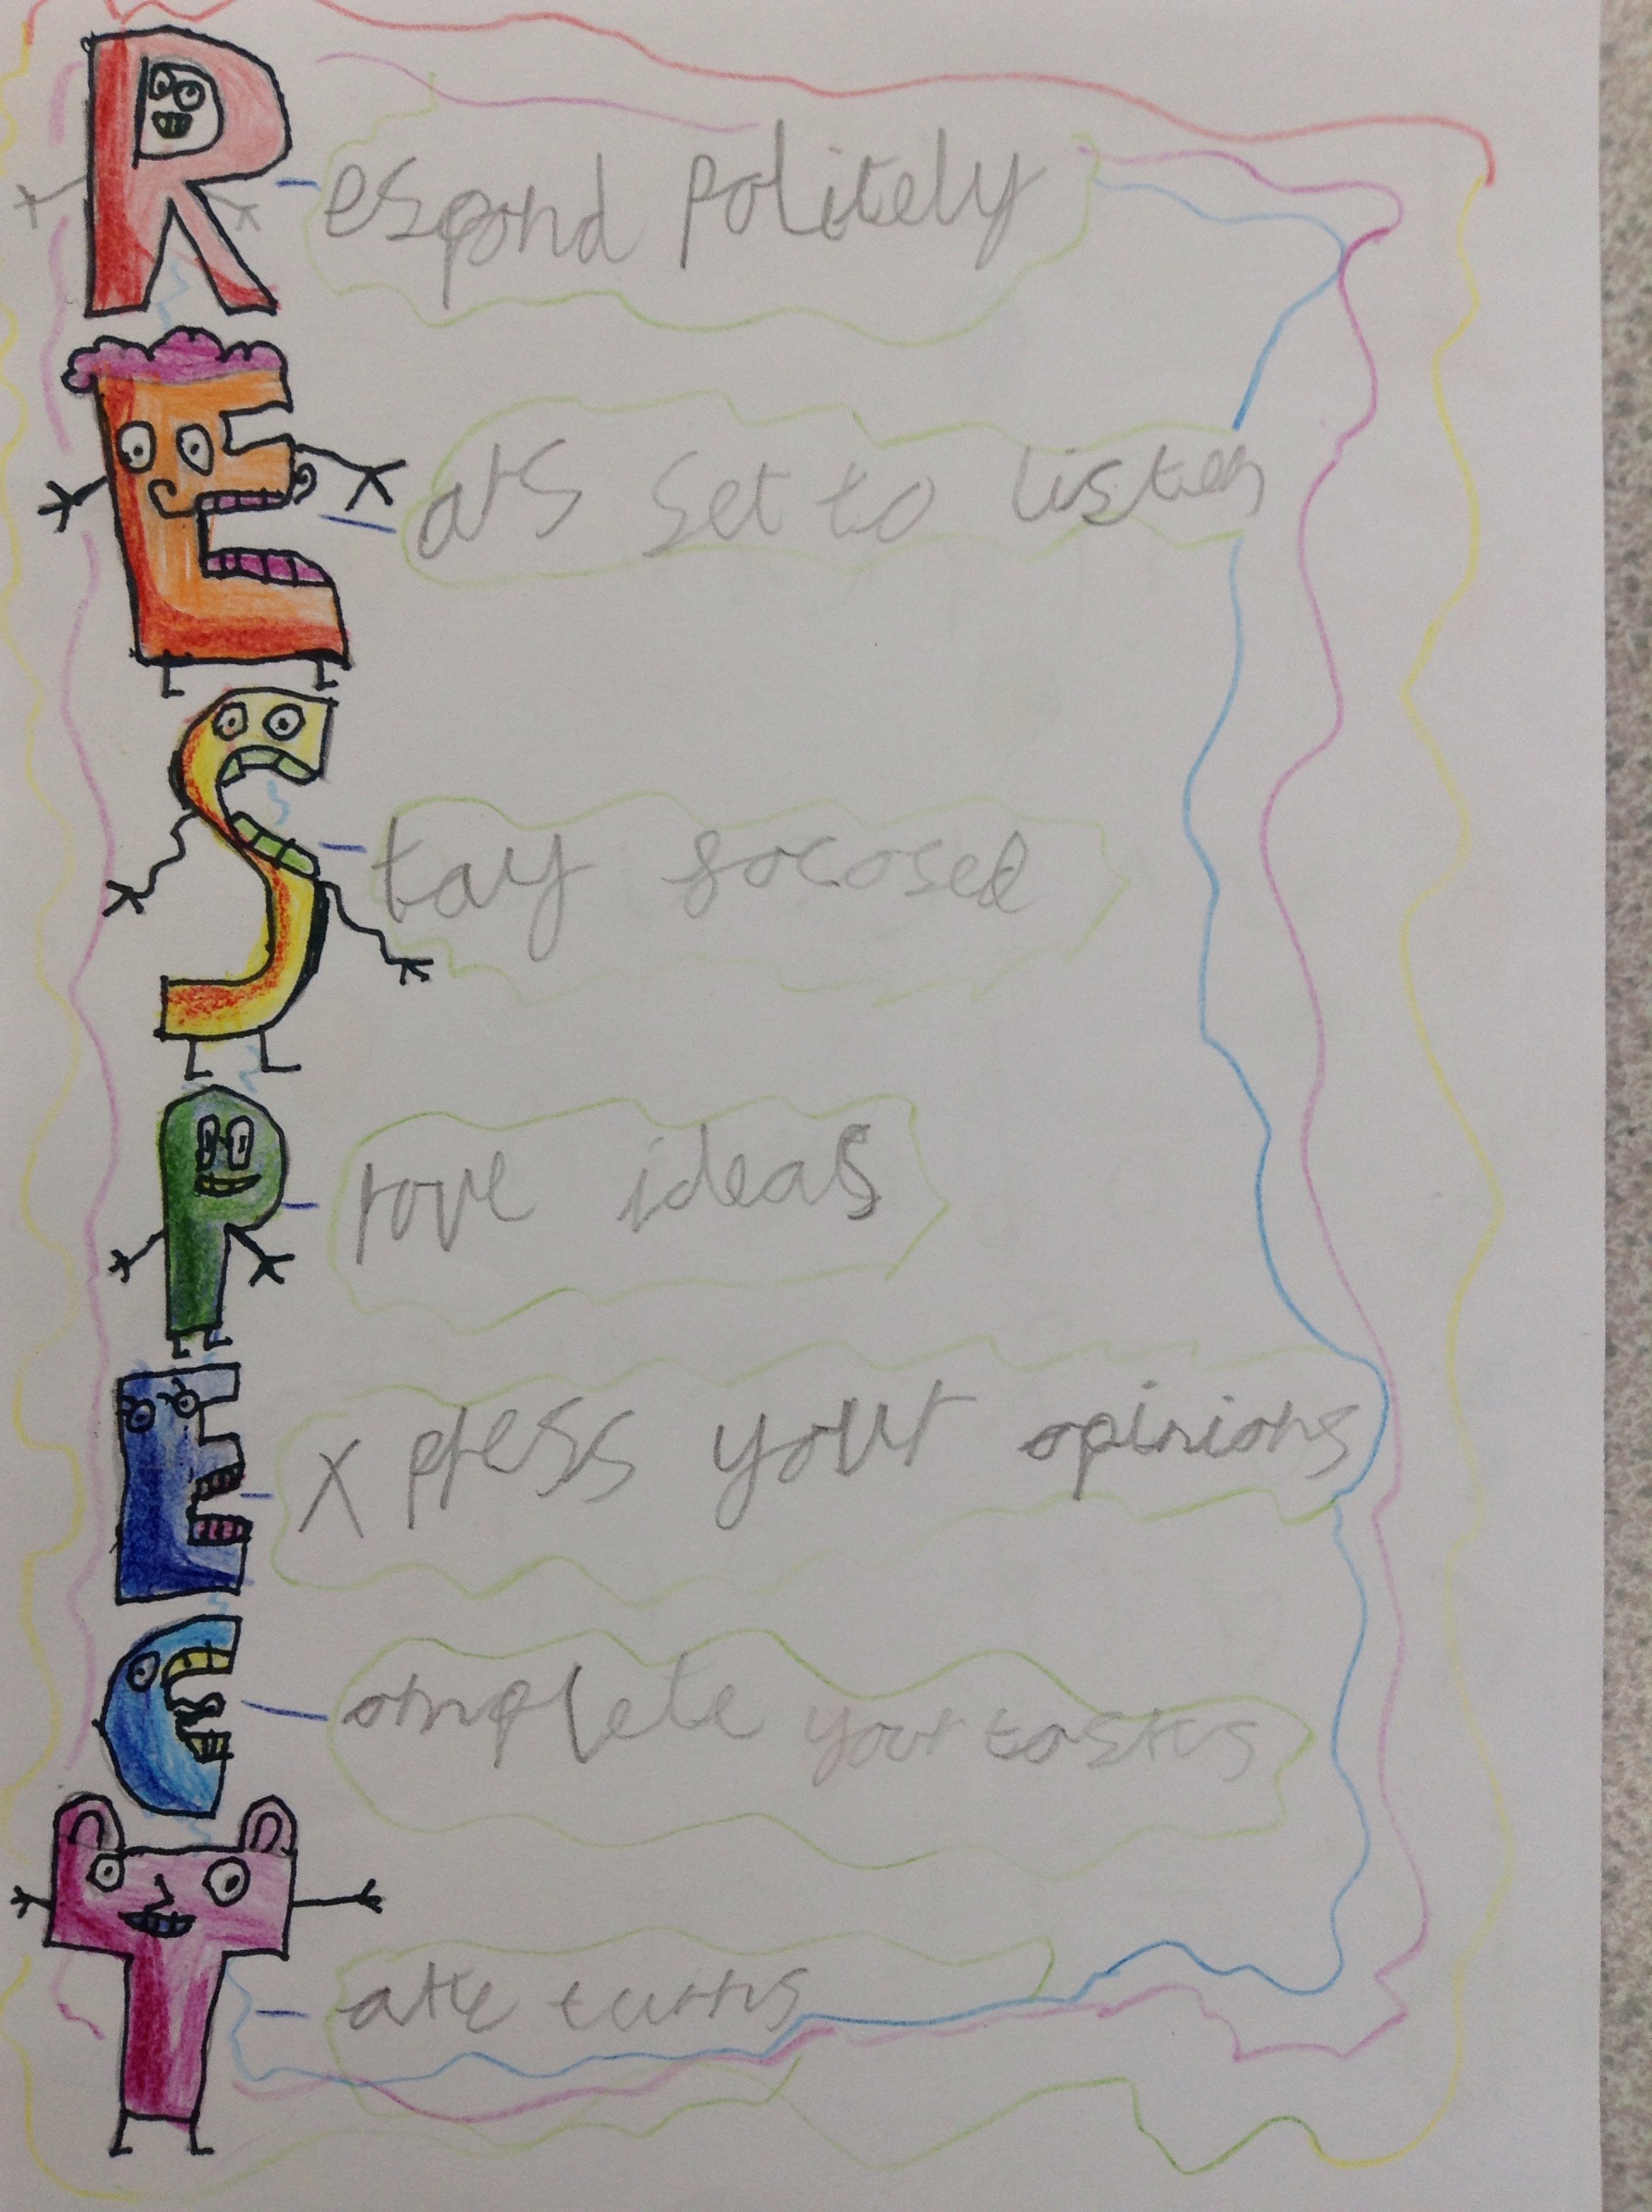 Respond politely
Ears set to listen
Stay focosed
Prove ideas
Express your opinions
Complete your tasks
Take turns